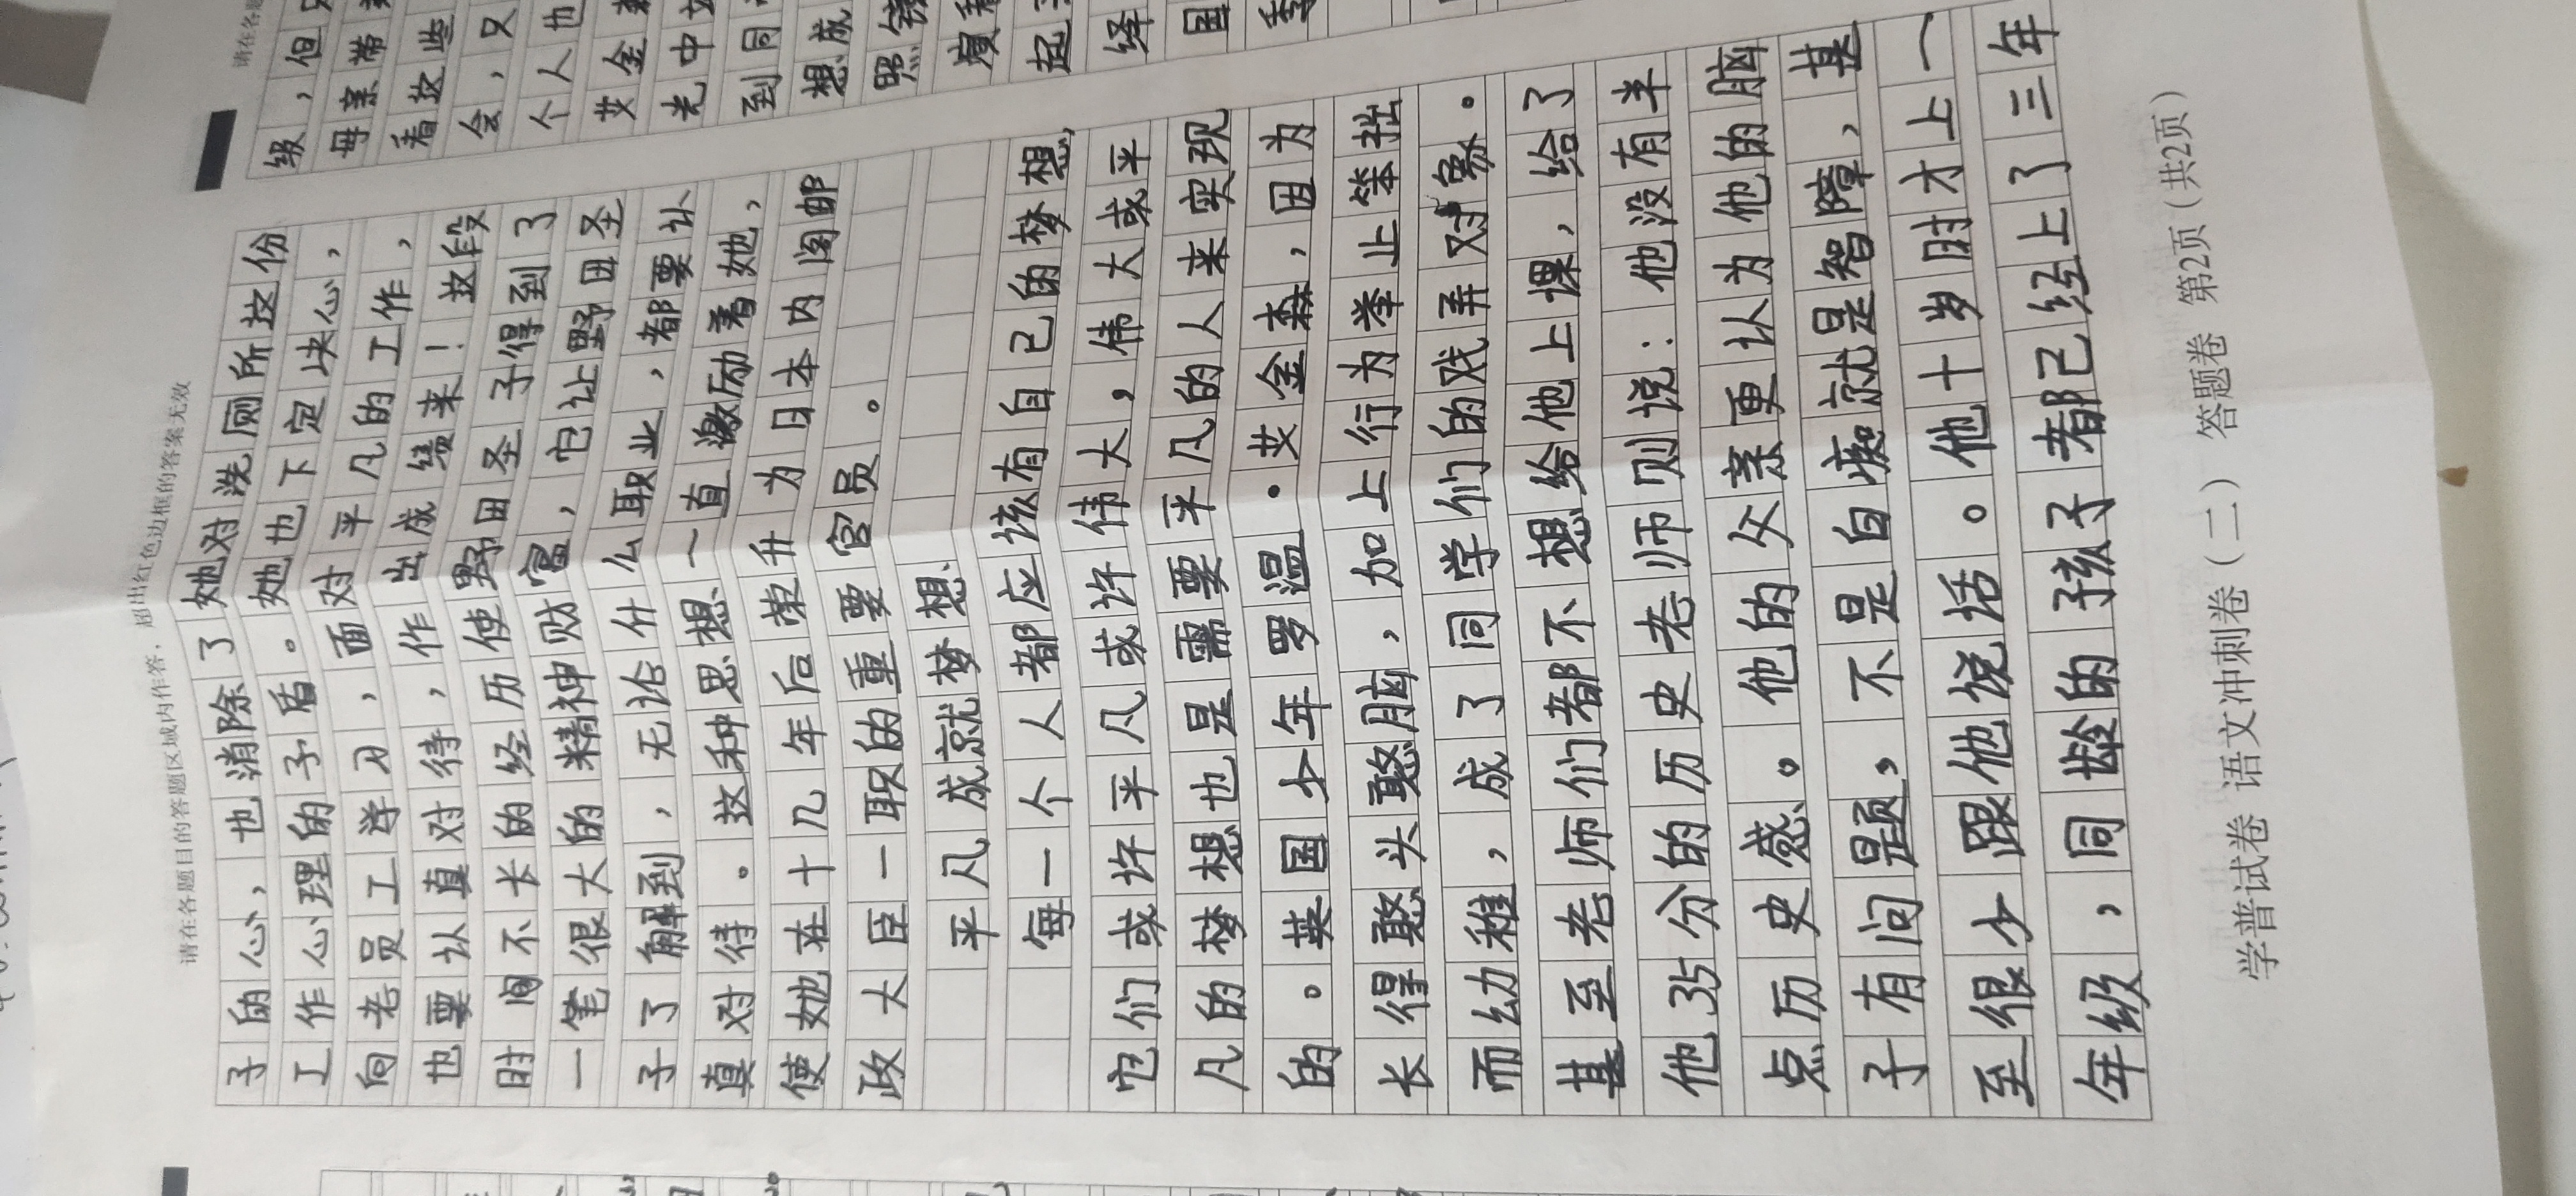 请在各题目的答题区域内作答，超出红色边框的答案无效
子的心，也消除了她对洗厕所这份
工作心理的矛盾。她也下定决心，
向老员工学习，面对平凡的工作，
也要认真对待，作出成绩来！这段
时间不长的经历使野田圣子得到了
一笔很大的精神财富，它让野田圣
子了解到，无论什么职业，都要认
真对待。这种思想一直激励着她，
使她在十几年后荣升为日本内阁邮
政大臣一职的重要官员。
平凡成就梦想
每一个人都应该有自己的梦想，
它们或许平凡或许伟大，伟大或平
凡的梦想也是需要平凡的人来实现
的。英国少年罗温·艾金森，因为
长得憨头憨脑，加上行为举止笨拙
而幼稚，成了同学们的戏弄对象。
甚至老师们都不想给他上课，给了
他35分的历史老师则说：他没有半
点历史感。他的父亲更认为他的脑
子有问题，不是白痴就是智障，甚
至很少跟他说话。他十岁时才上一
年级，同龄的孩子都已经上了三年
学普试卷 语文冲刺卷（二） 答题卷 第2页（共2页）
请在各题
级，但
母亲带
看这些
会，只
个人也
艾金
光中
到同
想成
照镜
演
起
绎
国